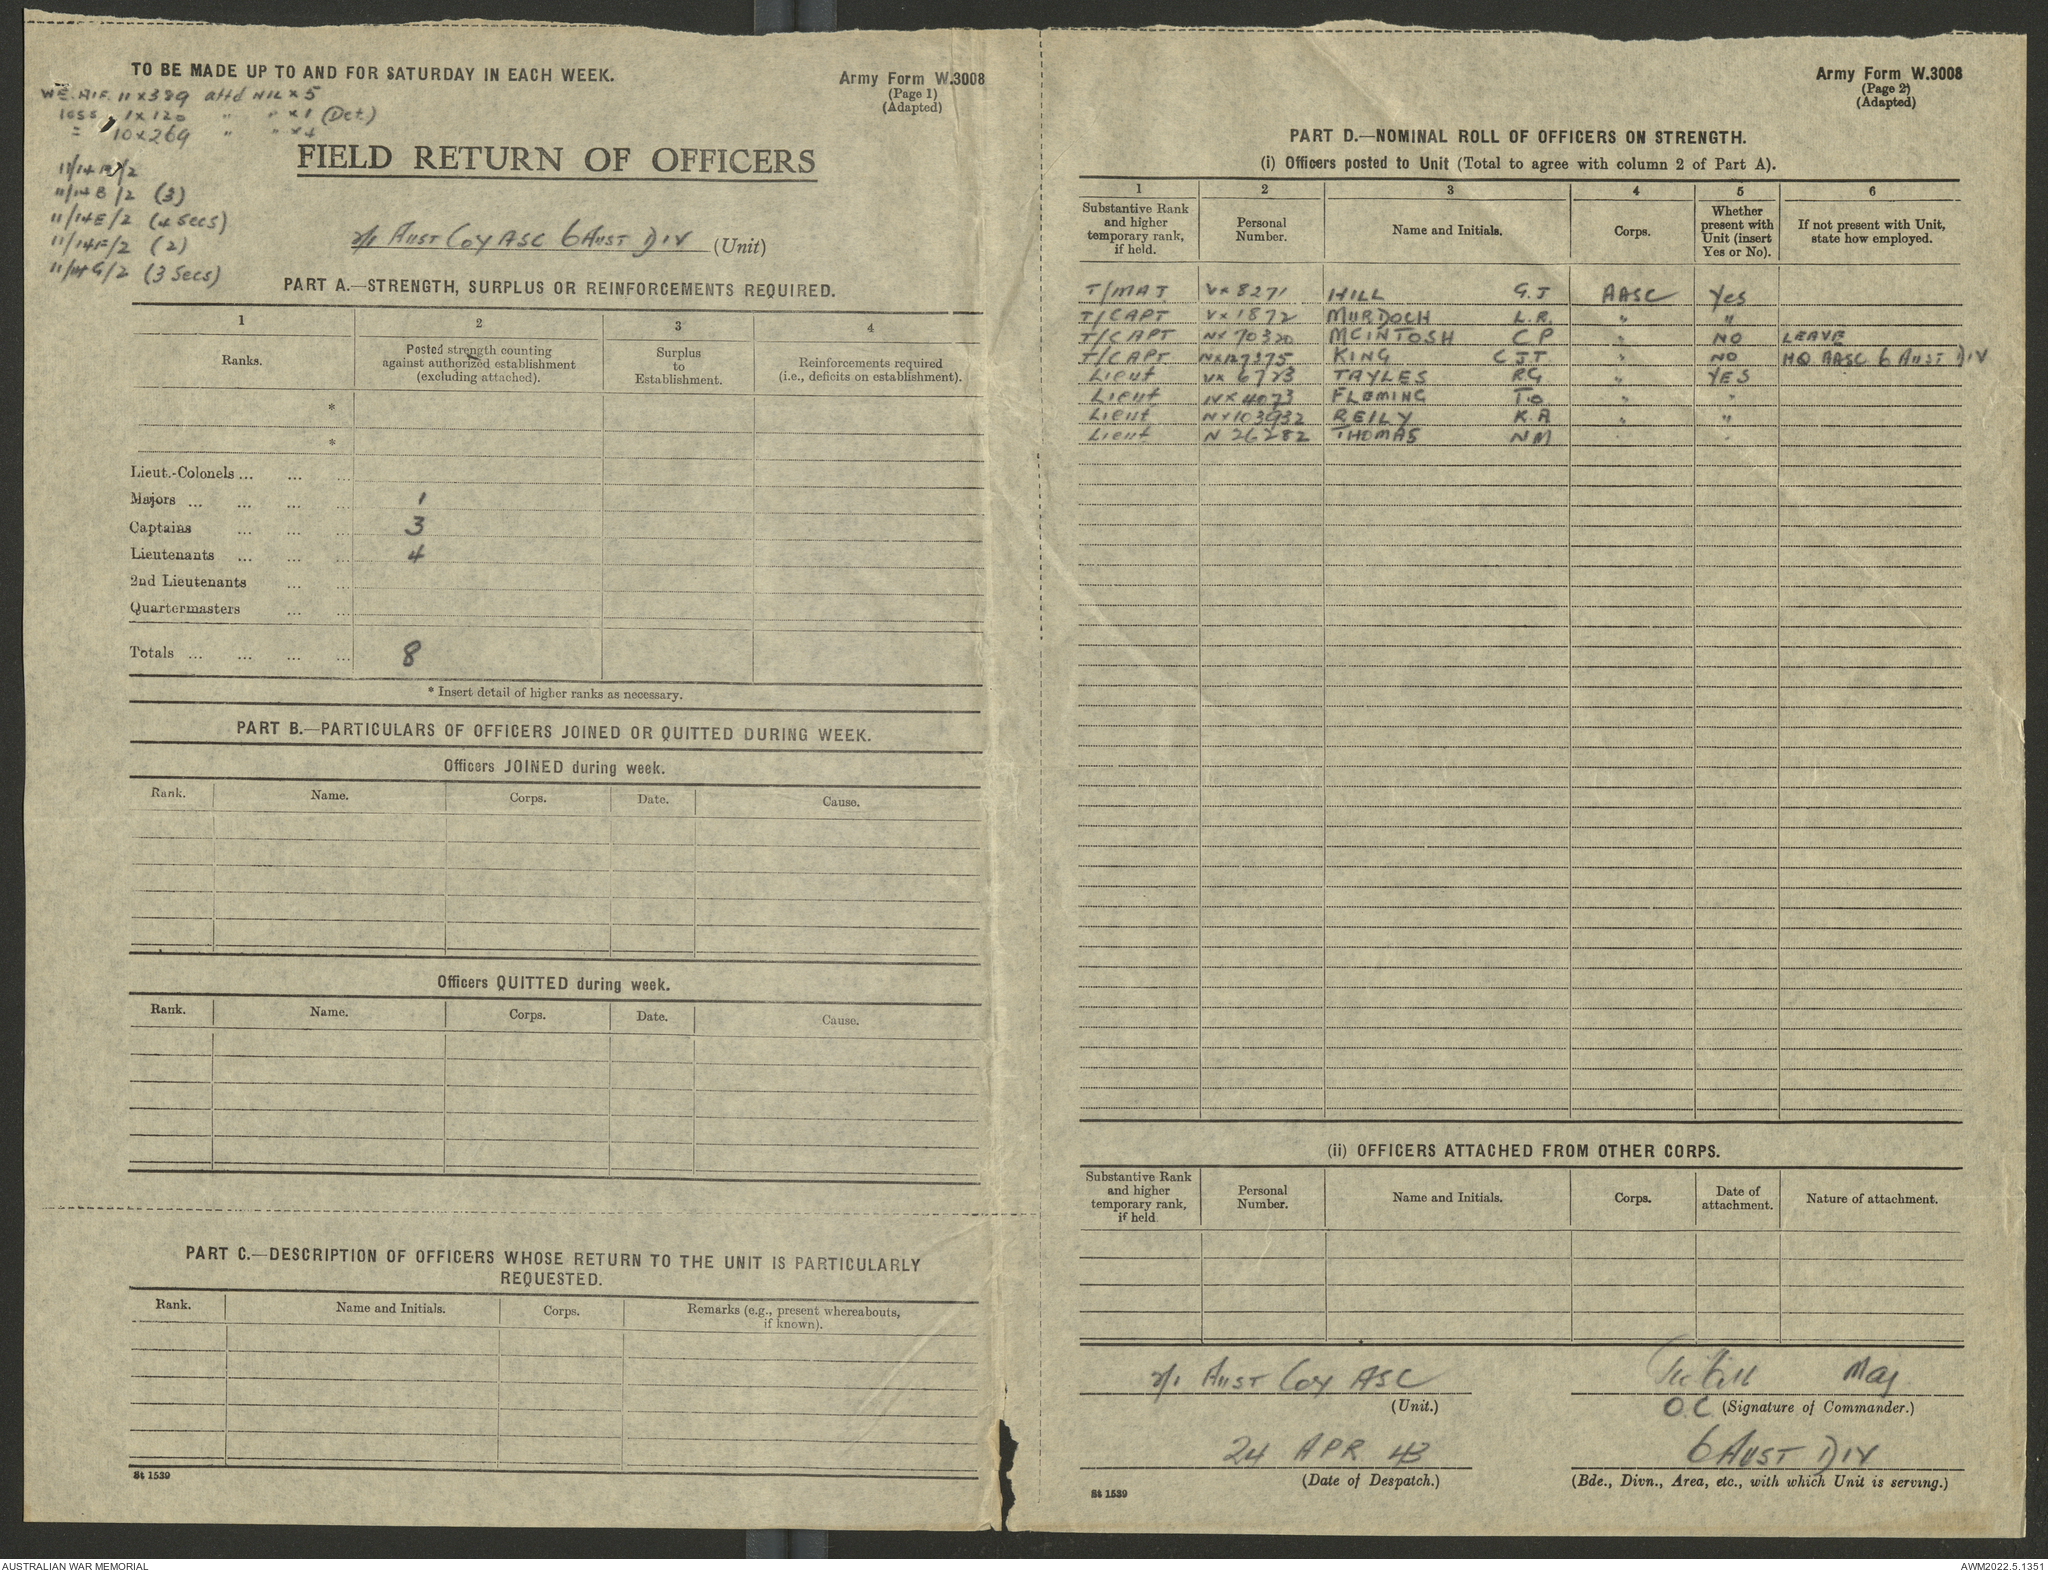 TO BE MADE UP TO AND FOR SATURDAY IN EACH WEEK.
Army Form W.3008
(Page 1)
(Adapted)
WE. AIF. 11 x 389 attd NIL x 5
less 1 x 120 " " x 1 (Det.)
= 10 x 269 " " x 4
11/14 /2
11/14 B/2 (3)
11/14 E/2 (4 Secs)
11/14 F/2 (2)
11/14 G/2 (3 Secs)
FIELD RETURN OF OFFICERS
2/1 AUST COY ASC 6 AUST DIV (Unit)
PART A.—STRENGTH, SURPLUS OR REINFORCEMENTS REQUIRED.
1 2 3 4
Ranks. Posted strength counting against authorized establishment (excluding attached). Surplus to Establishment. Reinforcements required (i.e., deficits on establishment).
*
*
Lieut.-Colonels ... ... ...
Majors ... ... ... ... 1
Captains ... ... ... 3
Lieutenants ... ... ... 4
2nd Lieutenants ... ...
Quartermasters ... ...
Totals ... ... ... ... 8
* Insert detail of higher ranks as necessary.
PART B.—PARTICULARS OF OFFICERS JOINED OR QUITTED DURING WEEK.
Officers JOINED during week.
Rank. Name. Corps. Date. Cause.
Officers QUITTED during week.
Rank. Name. Corps. Date. Cause.
PART C.—DESCRIPTION OF OFFICERS WHOSE RETURN TO THE UNIT IS PARTICULARLY
REQUESTED.
Rank. Name and Initials. Corps. Remarks (e.g., present whereabouts, if known).
St 1539
Army Form W.3008
(Page 2)
(Adapted)
PART D.—NOMINAL ROLL OF OFFICERS ON STRENGTH.
(i) Officers posted to Unit (Total to agree with column 2 of Part A).
1 2 3 4 5 6
Substantive Rank and higher temporary rank, if held. Personal Number. Name and Initials. Corps. Whether present with Unit (insert Yes or No). If not present with Unit, state how employed.
T/MAJ VX 8271 HILL G.J AASC Yes
T/CAPT VX 1872 MURDOCH L.R. " "
T/CAPT NX 70320 MCINTOSH C P " NO LEAVE
T/CAPT NX127375 KING C J T " NO HQ AASC 6 AUST DIV
Lieut VX 6723 TAYLES R.G " YES
Lieut NX 4073 FLEMING T.O " "
Lieut NX103932 REILY K.A " "
Lieut N 26282 THOMAS N M
(ii) OFFICERS ATTACHED FROM OTHER CORPS.
Substantive Rank and higher temporary rank, if held. Personal Number. Name and Initials. Corps. Date of attachment. Nature of attachment.
2/1 AUST COY ASC
(Unit.)
Maj
O.C (Signature of Commander.)
24 APR 43
(Date of Despatch.)
6 AUST DIV
(Bde., Divn., Area, etc., with which Unit is serving.)
St 1539
AUSTRALIAN WAR MEMORIAL
AWM2022.5.1351